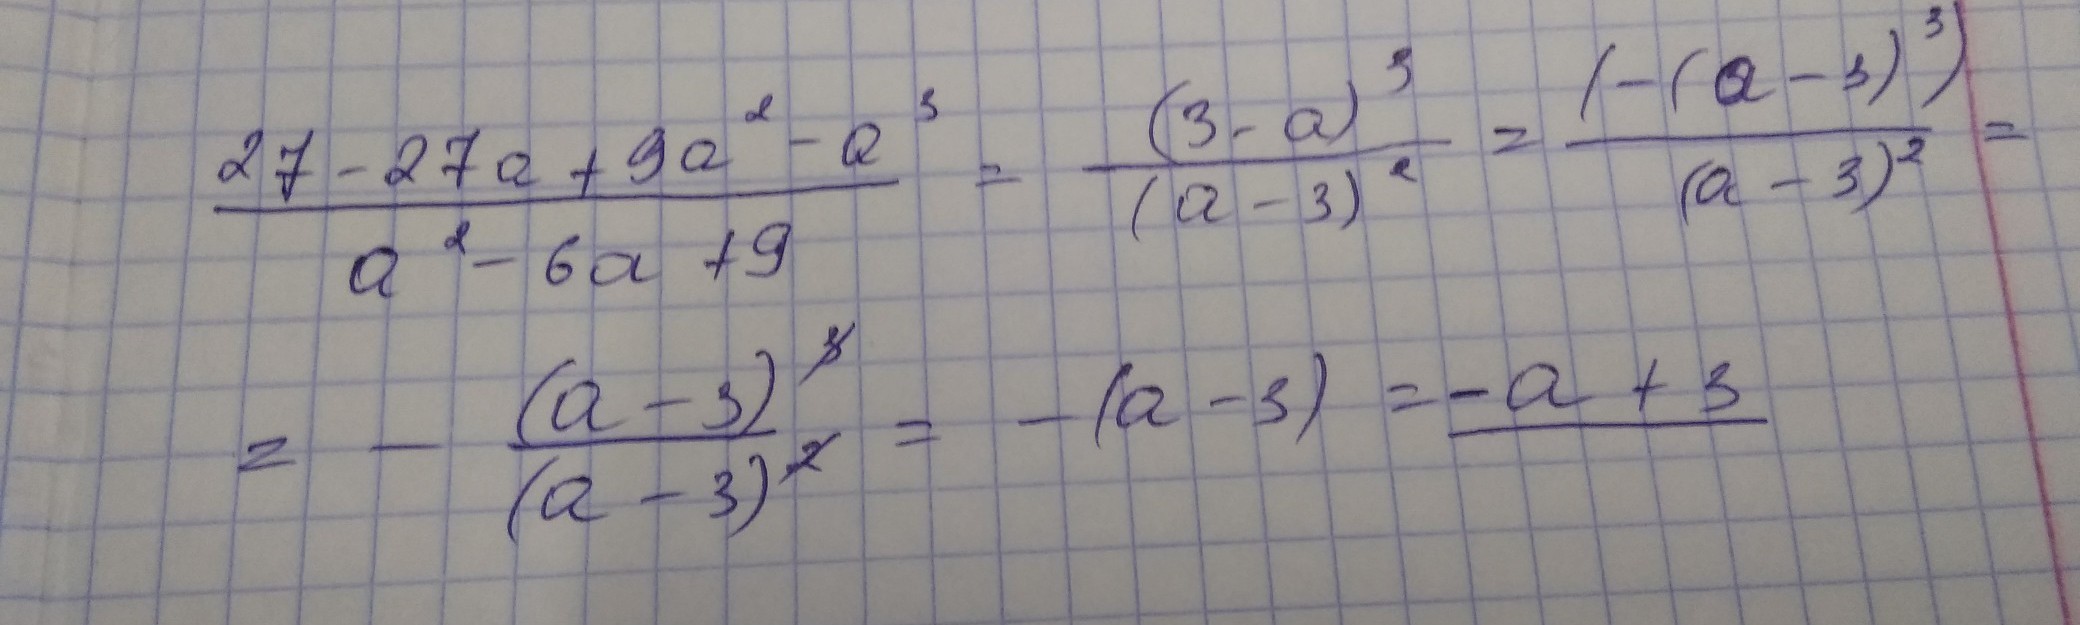 (27 - 27a + 9a² - a³)/(a² - 6a + 9) = (3 - a)³/(a - 3)² = (-(a - 3)³)/(a - 3)² =
= - (a - 3)³/(a - 3)² = - (a - 3) = -a + 3